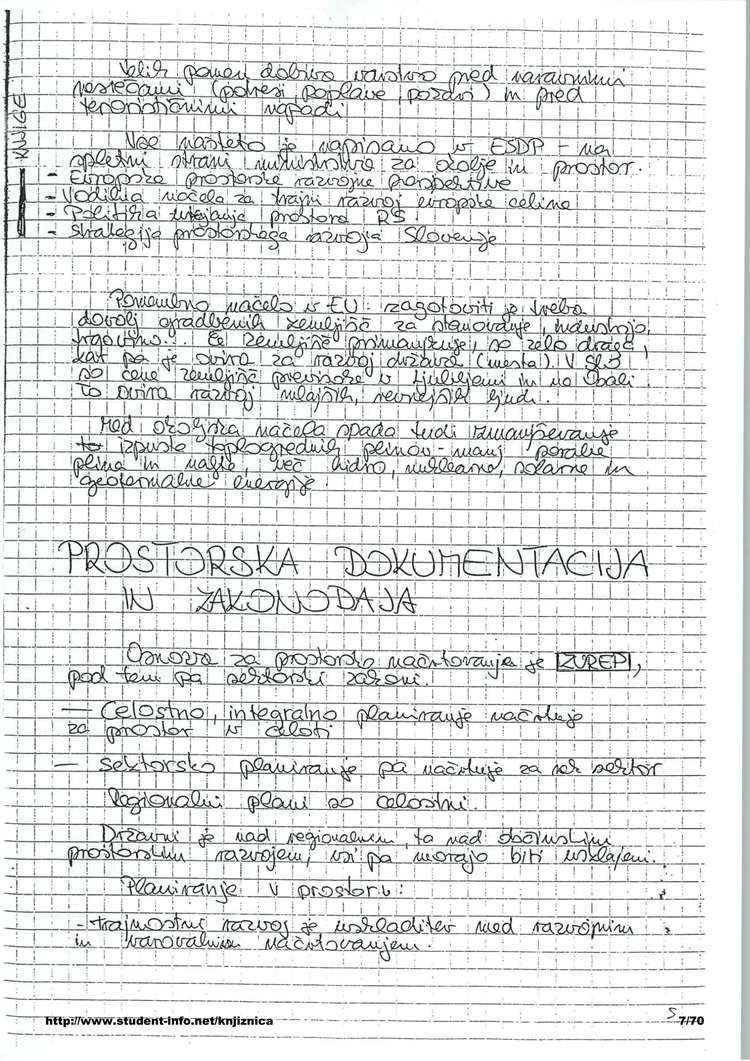 Velik pomen dobiva varstvo pred naravnimi
nesrečami (potresi, poplave, pozidvi) in pred
terorističnimi napadi
KNJIGE
Vse našteto je napisano v ESDP - na
spletni strani ministrstva za okolje in prostor.
- Evropske prostorske razvojne perspektive
- Vodilna načela za trajni razvoj evropske celine
- Politika urejanja prostora RS
- Strategija prostorskega razvoja Slovenije
Pomembno načelo v EU: zagotoviti je treba
dovolj gradbenih zemljišč za stanovanje, industrijo,
trgovino... Če zemljišč primanjkuje, so zelo draga,
kar pa je ovira za razvoj države (mesta). V SLO
so cene zemljišč previsoke v Ljubljani in na Obali.
To ovira razvoj mlajših, revnejših ljudi.
Med okoljska načela spada tudi zmanjševanje
izpusta toplogrednih plinov - manj porabe
plina in nafte, več hidro, nuklearne, solarne in
geotermalne energije.
PROSTORSKA DOKUMENTACIJA
IN ZAKONODAJA
Osnova za prostorsko načrtovanje je ZUREPI,
pod tem pa sektorski zakoni.
— Celostno, integralno planiranje načrtuje
za prostor v celoti
— Sektorsko planiranje pa načrtuje za sektor
Regionalni plani so celostni.
Državni je nad regionalnim, ta nad občinskim
prostorskim razvojem, vsi pa morajo biti usklajeni.
Planiranje v prostoru:
- trajnostni razvoj je uskladitev med razvojnim
in varovalnim načrtovanjem.
5
http://www.student-info.net/knjiznica 7/70